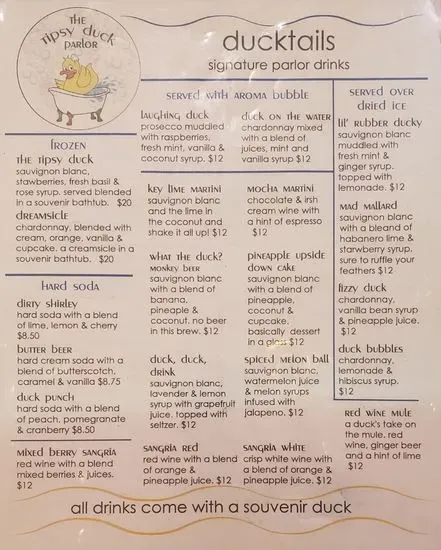 THE
TIPSY DUCK
PARLOR
ducktails
signature parlor drinks
FROZEN
THE TIPSY DUCK
sauvignon blanc,
stawberries, fresh basil &
rose syrup. served blended
in a souvenir bathtub. $20
DREAMSICLE
chardonnay, blended with
cream, orange, vanilla &
cupcake. a creamsicle in a
souvenir bathtub. $20
HARD SODA
DIRTY SHIRLEY
hard soda with a blend
of lime, lemon & cherry
$8.50
BUTTER BEER
hard cream soda with a
blend of butterscotch,
caramel & vanilla $8.75
DUCK PUNCH
hard soda with a blend of
of peach, pomegranate
& cranberry $8.50
MIXED BERRY SANGRIA
red wine with a blend
mixed berries & juices.
$12
SERVED WITH AROMA BUBBLE
LAUGHING DUCK
prosecco muddled
with raspberries,
fresh mint, vanilla &
coconut syrup. $12
DUCK ON THE WATER
chardonnay mixed
with a blend of
juices, mint and
vanilla syrup $12
KEY LIME MARTINI
sauvignon blanc
and the lime in
the coconut and
shake it all up! $12
MOCHA MARTINI
chocolate & irsh
cream wine with a
hint of espresso
$12
WHAT THE DUCK?
MONKEY BEER
sauvignon blanc
with a blend of
banana,
pineaple &
coconut. no beer
in this brew. $12
PINEAPPLE UPSIDE
DOWN CAKE
sauvignon blanc
with a blend of
pineapple,
coconut &
cupcake.
basically dessert
in a glass $12
DUCK, DUCK,
DRINK
sauvignon blanc,
lavender & lemon
syrup with grapefruit
juice. topped with
seltzer. $12
SPICED MELON BALL
sauvignon blanc,
watermelon juice
& melon syrups
infused with
jalapeno. $12
SANGRIA RED
red wine with a blend
of orange &
pineapple juice. $12
SANGRIA WHITE
crisp white wine with
a blend of orange &
pineapple juice. $12
SERVED OVER
DRIED ICE
LIL' RUBBER DUCKY
sauvignon blanc
muddled with
fresh mint &
ginger syrup.
topped with
lemonade. $12
MAD MALLARD
sauvignon blanc
with a bleand of
habanero lime &
starwberry syrup.
sure to ruffle your
feathers $12
FIZZY DUCK
chardonnay,
vanilla bean syrup
& pineapple juice.
$12
DUCK BUBBLES
chardonnay,
lemonade &
hibiscus syrup.
$12
RED WINE MULE
a duck's take on
the mule. red
wine, ginger beer
and a hint of lime
$12
all drinks come with a souvenir duck